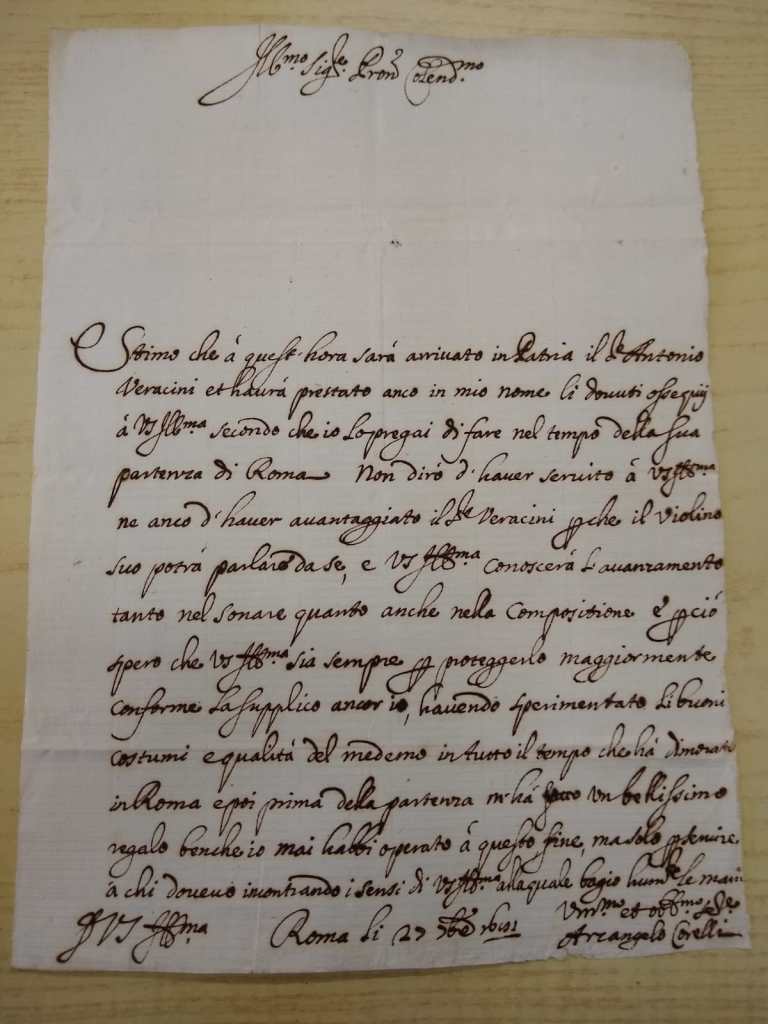 Ill.mo Sig.re Pron Colend.mo
Stimo che á quest'hora sará arrivato in Patria il S.r Antonio
Veracini et haurá prestato anco in mio nome li douuti ossequij
á VS Ill.ma secondo che io lo pregai di fare nel tempo della sua
partenza di Roma Non diró d'hauer seruito á VS Ill.ma
ne anco d'hauer auantaggiato il S.r Veracini p che il violino
suo potrá parlare da se, e VS Ill.ma conoscerá l'auanzamento
tanto nel sonare quanto anche nella Compositione é p ció
spero che VS Ill.ma sia sempre p proteggerlo maggiormente
conforme la supplico ancor io, hauendo sperimentato li buoni
costumi e qualitá del medemo in tutto il tempo che há dimorato
in Roma e poi prima della partenza m'há fatto un bellissimo
regalo benche io mai habbi operato á questo fine, ma solo p seruire
á chi doueuo incontrando i sensi di VS Ill.ma alla quale bagio hum.te le mani
VS Ill.ma Roma li 27 et obb.mo
Arcangelo Corelli